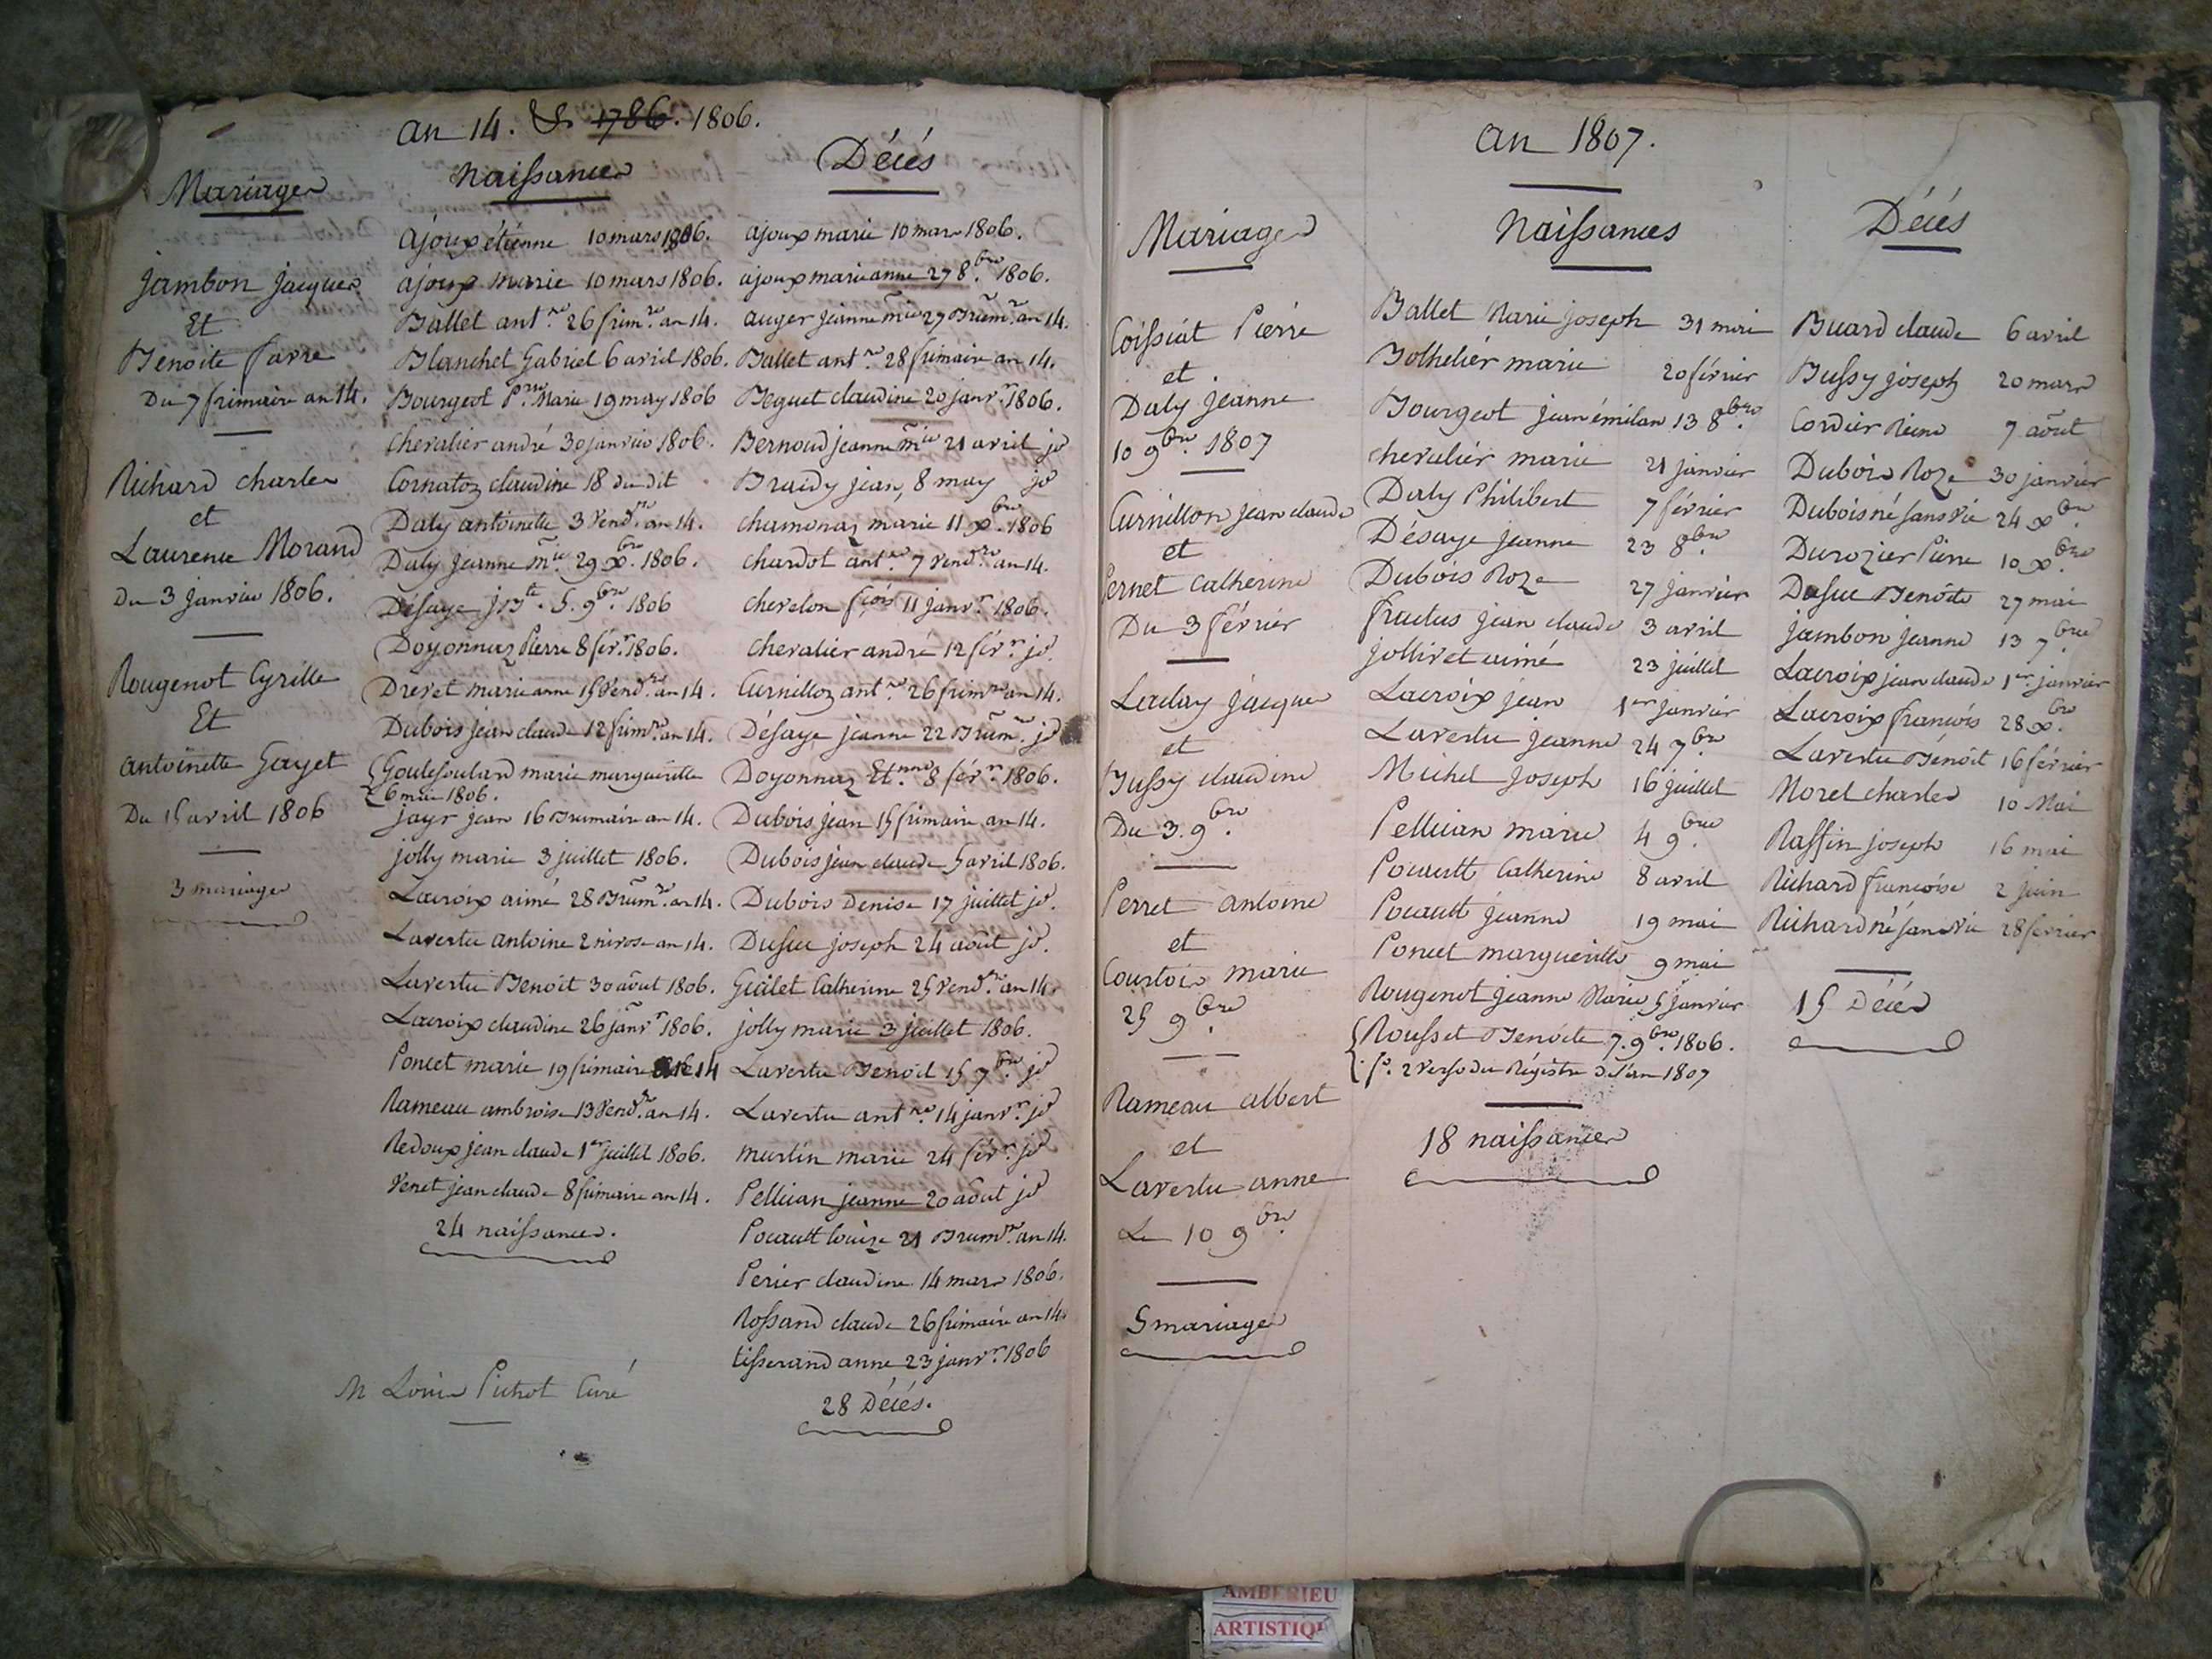 an 14. & 1786. 1806.
Mariages
jambon jacques
Et
Benoite favre
Du 7 frimaire an 14.
Richard charles
et
Laurence Morand
Du 3 janvier 1806.
Rougenot Cyrille
Et
antoinette Gayet
Du 15 avril 1806
3 mariages
Naissances
ajoux étienne 10 mars 1806.
ajoux marie 10 mars 1806.
Ballet ant.ne 26 frim.re an 14.
Blanchet Gabriel 6 avril 1806.
Bourgeot P.rre Marie 19 may 1806
chevalier andré 30 janvier 1806.
Cornaton claudine 18 du dit
Daly antoinette 3 vend.re an 14.
Daly jeanne m.ie 29 xbre. 1806.
Désaye j. B.te 5. 9bre. 1806
Doyonnaz Pierre 8 fév.r 1806.
Drevet marie anne 15 vend.re an 14.
Dubois jean claude 12 frim.re an 14.
Goutefoulard marie marguerite
26 mai 1806.
jayr jean 16 Brumaire an 14.
jolly marie 3 juillet 1806.
Lacroix aimé 28 Brum.re an 14.
Lavertu antoine 2 nivose an 14.
Lavertu Benoit 30 août 1806.
Lacroix claudine 26 janv.r 1806.
Poncet marie 19 frimaire an 14
Rameau ambroise 13 vend.re an 14.
Redoux jean claude 1er juillet 1806.
Venet jean claude 8 frimaire an 14.
24 naissances.
M Louis Pichot Curé
Décés
ajoux marie 10 mars 1806.
ajoux marie anne 27 8.bre 1806.
auger jeanne m.ie 27 Brum.re an 14.
Ballet ant.ne 28 frimaire an 14.
Beguet claudine 20 janv.r 1806.
Bernoud jeanne m.ie 21 avril jd
Braidy jean, 8 may jd
chamonaz marie 11 xbre. 1806
chardot ant.ne 7 vend.re an 14.
chevelon f.çois 11 janv.r 1806.
chevalier andré 12 fév.r jd.
Curnilloz ant.ne 26 frim.re an 14.
Désaye jeanne 22 Brum.re jd
Doyonnaz Et.nne 8 fév.r 1806.
Dubois jean 15 frimaire an 14.
Dubois jean claude 5 avril 1806.
Dubois Denise 17 juillet jd.
Dusuc joseph 24 août jd.
Guilet Catherine 25 vend.re an 14.
jolly marie 3 juillet 1806.
Lavertu Benoit 15 7bre. jd
Lavertu ant.ne 14 janv.r jd
merlin marie 24 fév.r jd
Pellican jeanne 20 août jd
Pocault louise 21 Brum.re an 14.
Perier claudine 14 mars 1806.
Rossand claude 26 frimaire an 14.
tisserand anne 23 janv.r 1806
28 Décés.
an 1807.
Mariages
Coissiat Pierre
et
Daly jeanne
10 9bre. 1807
Curnillon jean claude
et
Pernet catherine
Du 3 février
Leclay jacques
et
Bussy claudine
Du 3. 9bre.
Perret antoine
et
Courtois marie
25 9bre.
Rameau albert
et
Lavertu anne
Le 10 9bre.
5 mariages
Naissances
Ballet Marie joseph 31 mai
Bothelier marie 20 février
Bourgeot jean émilan 13 8bre.
chevalier marie 21 janvier
Daly Philibert 7 février
Désaye jeanne 23 8bre.
Dubois Roze 27 janvier
fructus jean claude 3 avril
jollivet aimé 23 juillet
Lacroix jean 1er janvier
Lavertu jeanne 24 7bre.
Michel joseph 16 juillet
Pellican marie 4 9bre.
Pocault Catherine 8 avril
Pocault jeanne 19 mai
Poncet marguerite 9 mai
Rougenot jeanne Marie 5 janvier
Rousset Benoite 7. 9bre. 1806.
f.o 2 verso du Régistre de l'an 1807
18 naissances
Décés
Buard claude 6 avril
Bussy joseph 20 mars
Cordier Reine 7 août
Dubois Roze 30 janvier
Dubois né sans vie 24 xbre.
Durozier Pierre 10 xbre.
Dusuc Benoite 27 mai
jambon jeanne 13 7bre.
Lacroix jean claude 1er janvier
Lacroix francois 28 xbre.
Lavertu Benoit 16 février
Morel charles 10 Mai
Raffin joseph 16 mai
Richard francoise 2 juin
Richard né sans vie 28 février
15 Décés
AMBERIEU
ARTISTIQ